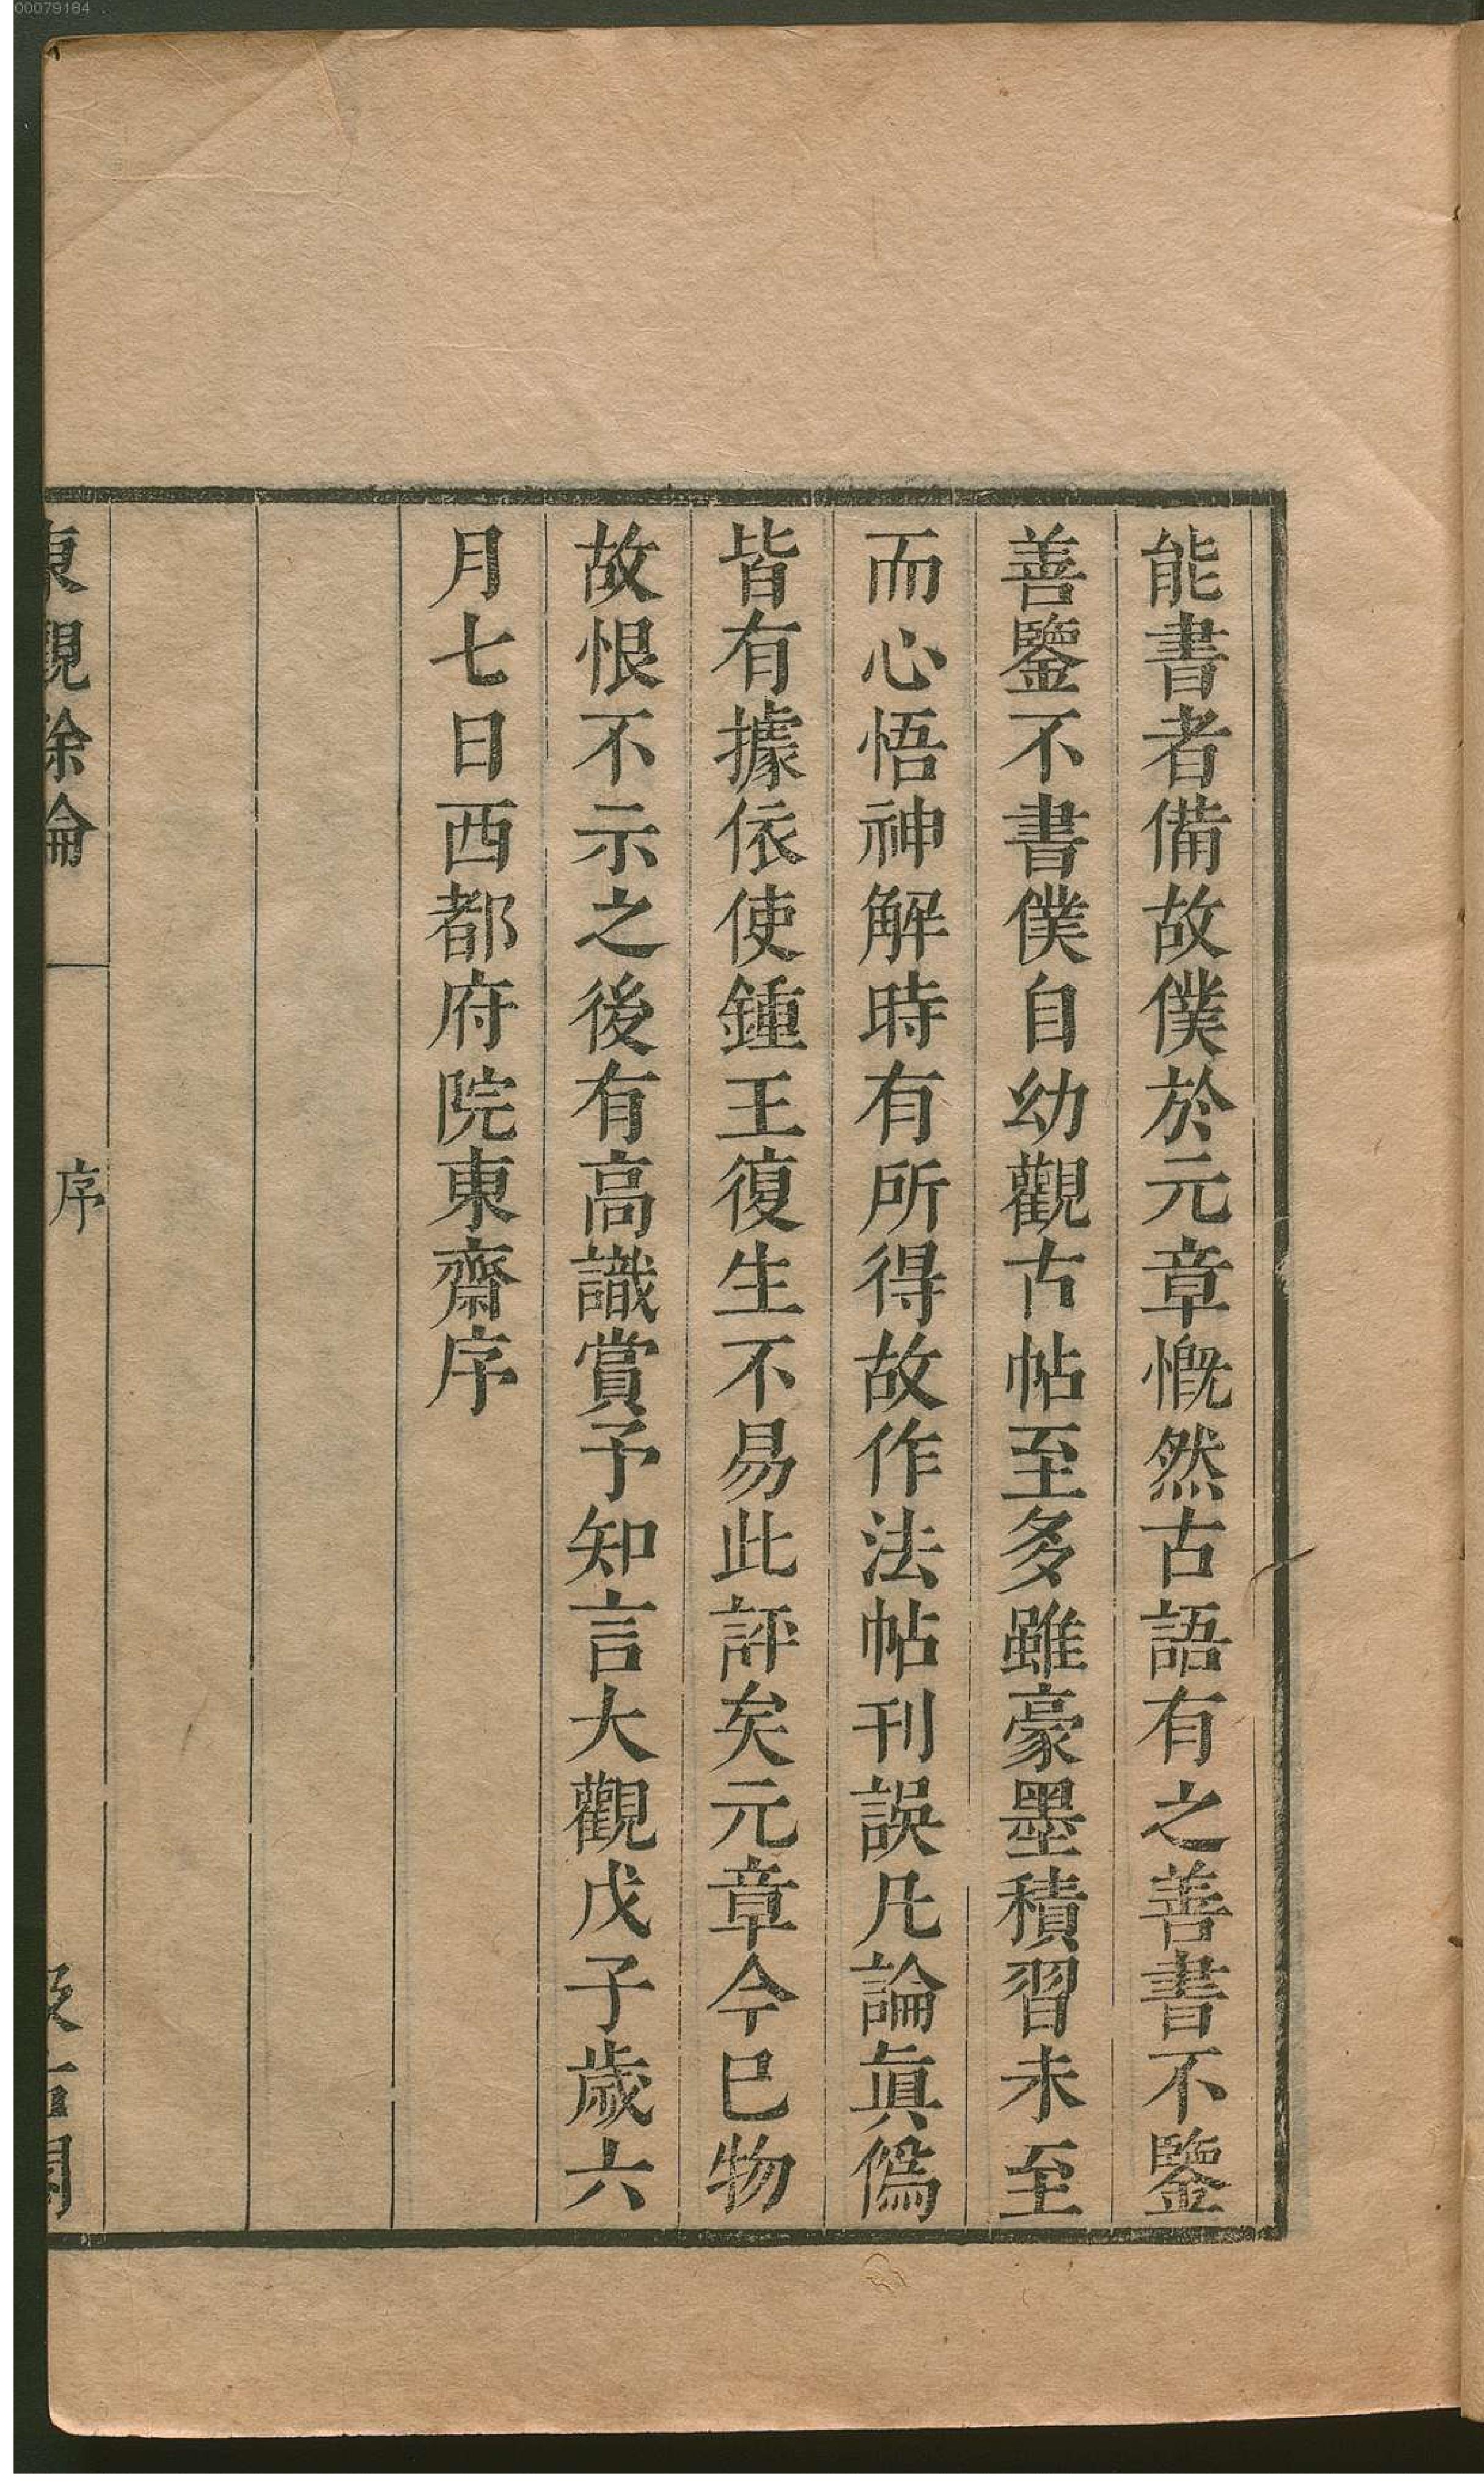 00079184
能書者備故僕於元章慨然古語有之善書不鑒
善鑒不書僕自幼觀古帖至多雖豪墨積習未至
而心悟神解時有所得故作法帖刊誤凡論眞僞
皆有據依使鍾王復生不易此評矣元章今已物
故恨不示之後有高識賞予知言大觀戊子歲六
月七日西都府院東齋序
東觀餘論 序 汲古閣